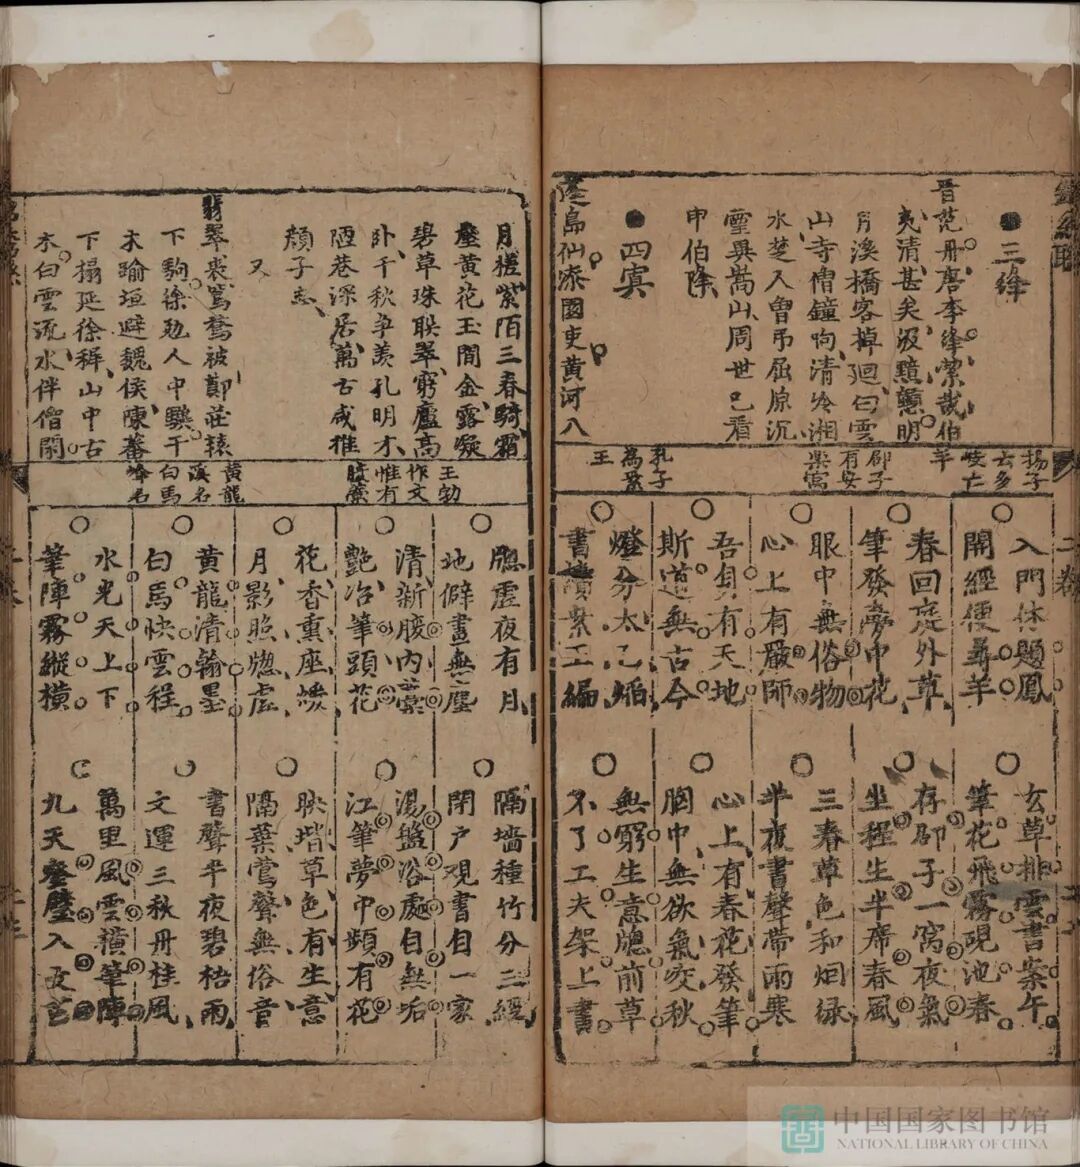 三絳
晋范丹唐李絳縈哉伯
夷清甚矣汲黯戇明
月溪橋客掉廻白雲
山寺僧鐘响清冷湘
水楚人魯吊屈原沉
靈異嵩山周世已看
申伯降
四寘
蓬島仙添國吏黄河八
揚子
去多
岐亡
羊
邵子
有安
楽窩
孔子
為素
王
入門休題鳳
開經便尋羊
春回庭外草
筆發夢中花
眼中無俗物
心上有嚴師
吾負有天地
斯道無古今
燈分太乙焰
書續素工編
玄草排雲書案午
筆花飛霧硯池春
存邵子一窩夜氣
坐程生半席春風
三春草色和烟绿
半夜書聲帶雨寒
心上有春花發筆
胸中無欲氣咬秋
無窮生意牕前草
不了工夫架上書
月槎紫陌三春騎霜
壓黄花玉間金露凝
碧草珠联翠窮廬高
卧千秋争羡孔明才
陋巷深居萬古咸推
顔子志
又
翡翠裘篤鴦被鄭莊轅
下駒徐勉人中驥干
木踰垣避魏侯陳蕃
下榻延徐穉山中古
木白雲流水伴僧閑
王勃
作文
惟有
腹藁
黄龍
溪名
白馬
峰名
牕虚夜有月
地僻畫無塵
清新腹内藁
艷冶筆頭花
花香熏座煖
月影照牕虚
黄龍清翰墨
白馬快雲程
水光天上下
筆陣霧縱横
隔墻種竹分三經
閉户观書自一家
湯盤浴處自無垢
江筆夢中頻有花
映堦草色有生意
隔葉鶯聲無俗音
書聲半夜碧梧雨
文運三秋丹桂風
萬里風雲横筆陣
九天奎璧入文芒
中国国家图书馆
NATIONAL LIBRARY OF CHINA